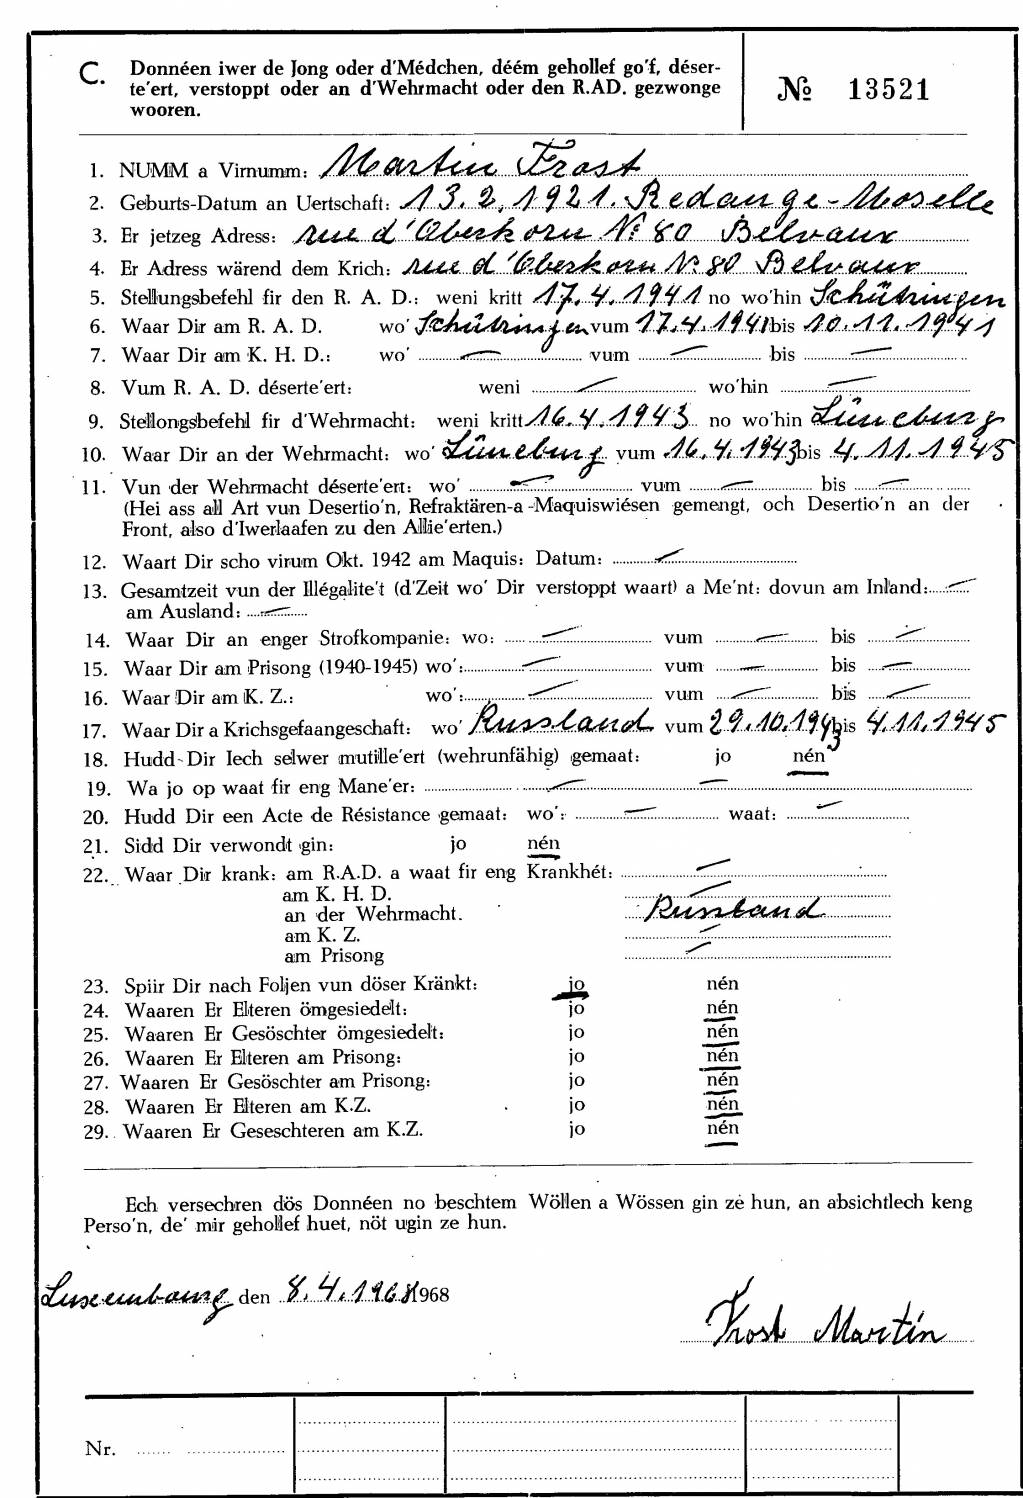 C. Donnéen iwer de Jong oder d'Médchen, déém gehollef go'f, déser-
te'ert, verstoppt oder an d'Wehrmacht oder den R.AD. gezwonge
wooren.
№ 13521
1. NUMM a Virnumm: Martin Frost
2. Geburts-Datum an Uertschaft: 13.2.1921. Redange-Moselle
3. Er jetzeg Adress: rue d'Oberkorn № 80 Belvaux
4. Er Adress wärend dem Krich: rue d'Oberkorn № 80 Belvaux
5. Stellungsbefehl fir den R. A. D.: weni kritt 17.4.1941 no wo'hin Schütringen
6. Waar Dir am R. A. D. wo' Schütringen vum 17.4.1941 bis 10.11.1941
7. Waar Dir am K. H. D.: wo' — vum — bis —
8. Vum R. A. D. déserte'ert: weni — wo'hin —
9. Stellongsbefehl fir d'Wehrmacht: weni kritt 16.4.1943 no wo'hin Lüneburg
10. Waar Dir an der Wehrmacht: wo' Lüneburg vum 16.4.1943 bis 4.11.1945
11. Vun der Wehrmacht déserte'ert: wo' — vum — bis —
(Hei ass all Art vun Desertio'n, Refraktären-a-Maquiswiésen gemengt, och Desertio'n an der
Front, also d'Iwerlaafen zu den Allie'erten.)
12. Waart Dir scho virum Okt. 1942 am Maquis: Datum: —
13. Gesamtzeit vun der Illégalite't (d'Zeit wo' Dir verstoppt waart) a Me'nt: dovun am Inland: —
am Ausland: —
14. Waar Dir an enger Strofkompanie: wo: — vum — bis —
15. Waar Dir am Prisong (1940-1945) wo': — vum — bis —
16. Waar Dir am K. Z.: wo': — vum — bis —
17. Waar Dir a Krichsgefaangeschaft: wo' Russland vum 29.10.1943 bis 4.11.1945
18. Hudd Dir Iech selwer mutille'ert (wehrunfähig) gemaat: jo nén
19. Wa jo op waat fir eng Mane'er: — —
20. Hudd Dir een Acte de Résistance gemaat: wo': — waat: —
21. Sidd Dir verwondt gin: jo nén
22. Waar Dir krank: am R.A.D. a waat fir eng Krankhét: —
am K. H. D. —
an der Wehrmacht. Russland
am K. Z. —
am Prisong —
23. Spiir Dir nach Foljen vun döser Kränkt: jo nén
24. Waaren Er Elteren ömgesiedelt: jo nén
25. Waaren Er Gesöschter ömgesiedelt: jo nén
26. Waaren Er Elteren am Prisong: jo nén
27. Waaren Er Gesöschter am Prisong: jo nén
28. Waaren Er Elteren am K.Z. jo nén
29. Waaren Er Geseschteren am K.Z. jo nén
Ech versechren dös Donnéen no beschtem Wöllen a Wössen gin ze hun, an absichtlech keng
Perso'n, de' mir gehollef huet, nöt ugin ze hun.
Luxembourg den 8.4.1968 1968
Frost Martin
Nr.